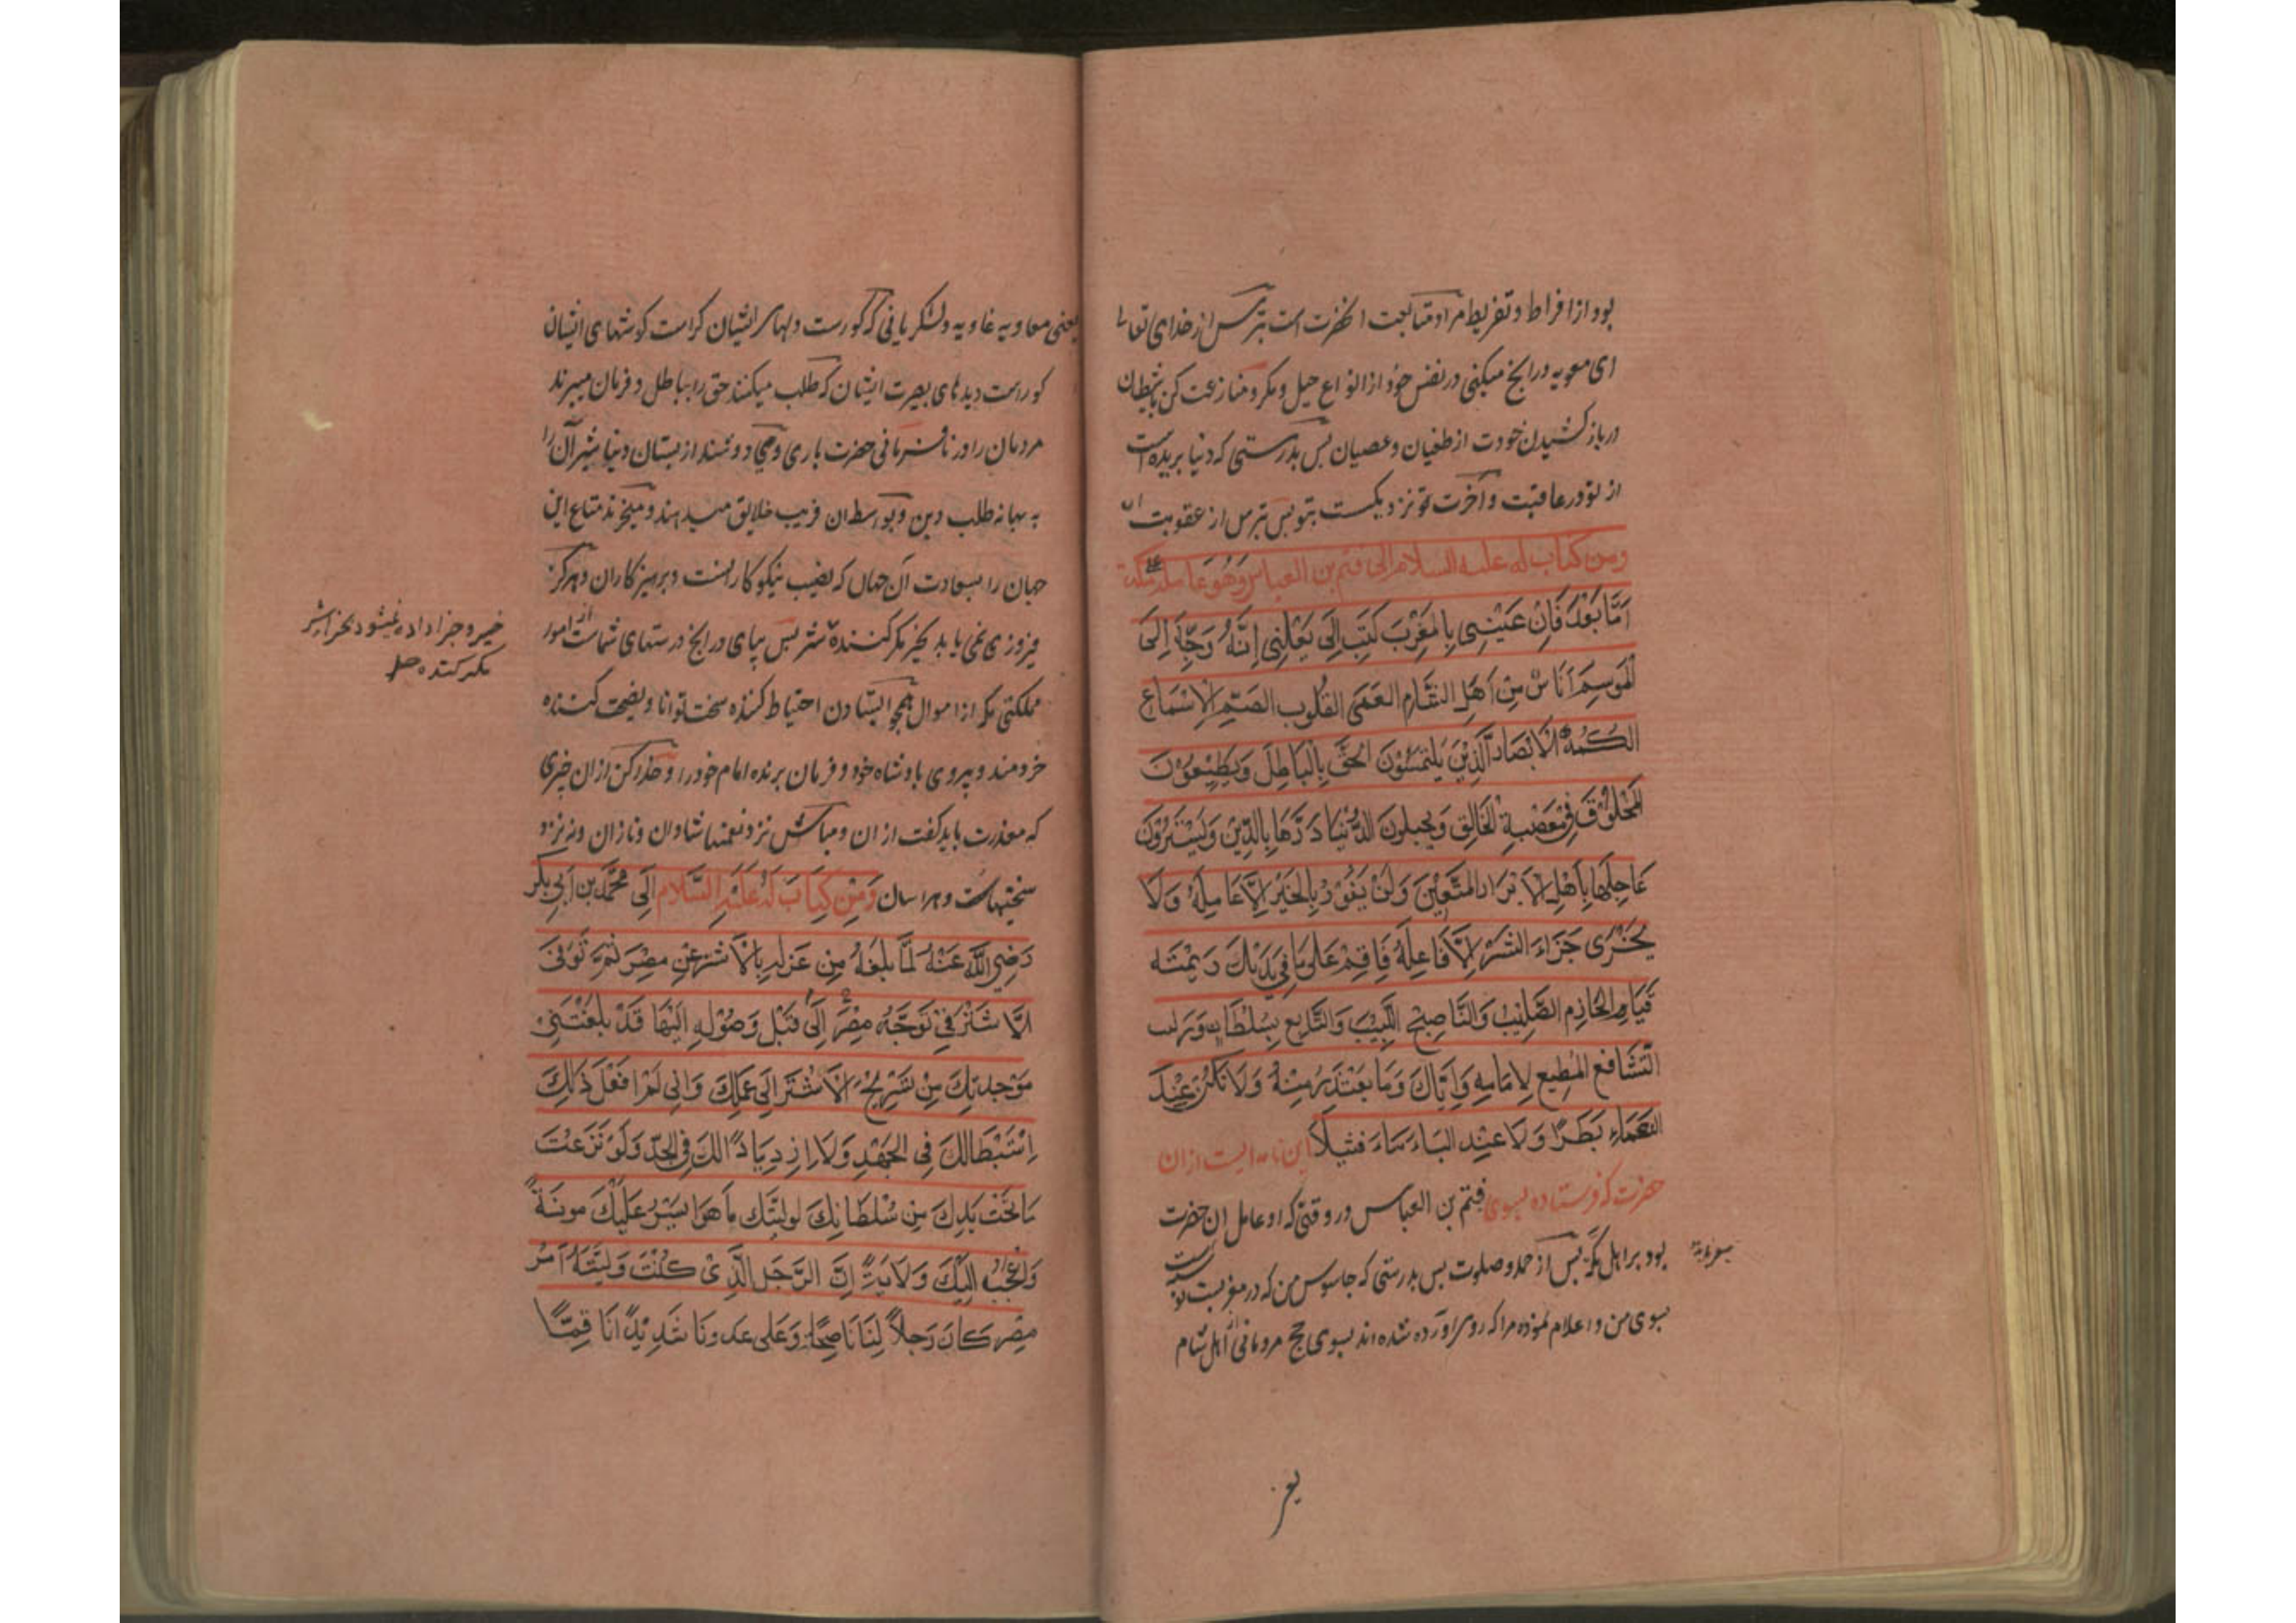 بود از افراط و تفریط مراد متابعت آنحضرت است بترس از خدای تعالی
ای معویه در انچ میکنی در نفس خود از انواع حیل و مکر و منازعت کن باشیطان
در باز کشیدن خودت از طغیان و عصیان بس بدرستی که دنیا بریده است
از تو در عاقبت و آخرت تو نزدیکست بتو بس بترس از عقوبت ان
ومن كتاب له عليه السلام الى قثم بن العباس وهو عامله على مكة
اَمَّا بَعْدُ فَاِنْ عَيْنِىِ بِالمَغْرِبَ كَتَبَ اِلَى يَعْلِنِى اِنَّهُ وَجِّهَ اِلىَ
الْمَوسِمِ اُنَاسٌ مِنْ اَهْلِ الشَّامِ العَمَى القُلُوبِ الصُّمِّ الاِسْمَاعِ
الكُمْهُ الْاَبْصَارِ الَّذِيْنَ يَلْتَمِسُوْنَ الحَقَّ بِالْبَاطِلَ وَيَطِيْعُوْنَ
المَخْلُوْقَ فِى مَعْصِيَةِ الْخَالِقِ وَيحتبلونَ الدُّنْيَا دَرَّهَا بِالدِّيْنِ وَلَيشْتَرُوْنَ
عَاجِلَهَا بِآهْلِ الاَبْرَارِ المتَّقِيْنَ وَلَنْ يَفُوْزُ بِالْخَيْرِ اِلَّا عَامِلَهُ وَلَا
يُجْزَى جَزَاءَ الشَّرِّ اِلَّا فَاعِلَهُ فَاَقِمْ عَلَى مَا فِى يَدَيْكَ
قَيَامِ الحَازِمِ الصَّلِيْبِ وَالنَّاصِحِ اللَّبِيْبِ وَالتَّابِعِ بِسُلْطَانِهِ
المُطِيعِ لِاِمَامِهِ وَاِيَّاكَ وَمَا يَعْتَذَرُ مِنْهُ وَلَا تَكُنْ عِنْدَ
النَعْمَاءِ بَطَرًا وَلَا عِنْدِ البَاءَسَاءَ فَشِيْلًا این نامه ایست ازان
حضرت که فرستاده بسوی قثم بن العباس در وقتی که او عامل ان حضرت
بود بر اهل مکه بس از حمد و صلوت بس بدرستی که جاسوس من که در مغربست نوشته
بسوی من و اعلام نموده مرا که روی اورده شده اند بسوی حج مردمانی از اهل شام
یعنی
یعنی معاویه غاویه و لشکریانی که کورست دلهای ایشان کراست کوشهای ایشان
کور است دیدهای بصیرت ایشان که طلب میکنند حق را بباطل و فرمان میبرند
مردمان را در نافرمانی حضرت باری و می دوشند از بستان دنیا شیر آن را
به بهانه طلب دین و بواسطه ان فریب خلایق میدهند و میخرند متاع این
جهان را بسعادت آن جهان که نصیب نیکوکارانست و برهیزکاران و هرکز
فیروزی نمی یابد بخیر مکر کننده شر بس بپای در انچ در ستهای شماست از امور
خیر و جزا داده نمیشود بجزا شر
مکر کننده
مملکتی مکر از اموال همچو ایستادن احتیاط کننده سخت توانا و نصیحت کننده
خردمند و پیروی بادشاه خود و فرمان برنده امام خود را و حذر کن ازان خبری
که معذرت باید کفت ازان و مباش نزد نعمتها شادان و نازان و نه نزد
سختیها سست و هراسان وَمِنْ كِتَابَ لَهُ عَلَيْهِ السَّلَام اِلَى مُحَمَّد بن اَبِى بكر
رَضِىَ اللَّهُ عَنْهُ لَمَّا بَلَغَهُ مِن عَزلِهِ بِالْاَشْتَرِ عَنِ مِصْرَ ثُمَّ تُوَفىَ
الْاَشْتَرْ فِىْ تَوَجّهُ مِصْرَ اِلَىٰ قَبْل وَصُوْلِهِ اِلَيْهَا قَدْ بَلَغْتَنِىْ
مَوْجِدتِكَ مِنْ تَسْرِيْحُ الْاَشْتَرَ اِلَى عَمَلِكَ وَاِنِى لَمْ اَفْعَلْ ذَلِكَ
اِسْتِبْطَا لكَ فِى الجَهْدِ وَلَا اِزدِيَادًا لكَ فِى الجدّ وَلَوْ نَزَعْتُ
مَا تَحْتَ يَدِكَ مِنْ سُلْطَانِكَ لَولَيتُكَ مَا هَوَ ايْسَرُ عَلَيْكَ مَونَةً
وَاَعْجَبُ اِلَيْكَ وَلَايَةً اِنَّ الرَّجَلِ الَّذِىْ كُنْتُ وَلَّيْتَهُ اَمَرُ
مِصْرِ كَانَ رَجلاً لَنَا نَاصِحًا وَعَلى عَدونَا شَدِيْدًا نَاقِمًا